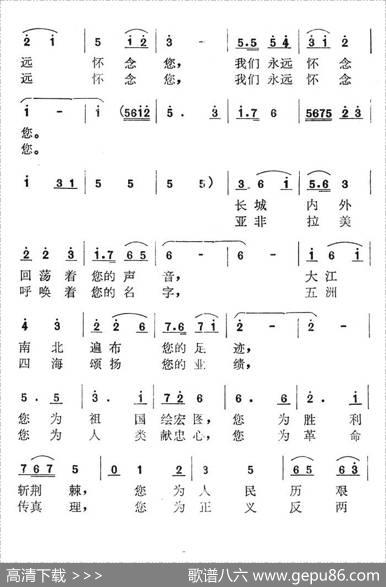 2̇ i̇ | 5 i̇2̇ | 3̇ - | 5̇.5̇ 5̇4̇ | 3̇i̇ 2̇ |
远 怀 念 您， 我们 永远 怀 念
远 怀 念 您， 我们 永远 怀 念
i̇ - | i̇ (56i̇2̇ | 5. 3̇ | i̇.7 6 | 5675 2̇3̇ |
您。
您。
i̇ 3i | 5 5 | 5 5) | 3 6 i̇ | 5.6 3 |
长 城 内 外
亚 非 拉 美
2̇ 2̇ 3̇ | i̇.7 65 | 6 - | 6 - | i̇ 6 i̇ |
回 荡 着 您的 声 音， 大 江
呼 唤 着 您的 名 字， 五 洲
4̇ 3̇ | 2̇ 2̇ 6 | 7.6 7i̇ | 2̇ - | 2̇ - |
南 北 遍 布 您的 足 迹，
四 海 颂 扬 您的 业 绩，
5. 5 | 3̇. i̇ | 7 2̇ 7 6 | 6. 6 | 2̇. i̇ |
您 为 祖 国 绘宏图， 您 为 胜 利
您 为 人 类 献忠心， 您 为 革 命
767 5 | 0 1 | 2 3 | 5 65 | 63̇ |
斩荆 棘， 您 为 人 民 历 艰
传真 理， 您 为 正 义 反 两
高清下载 >>> 歌谱八六 www.gepu86.com